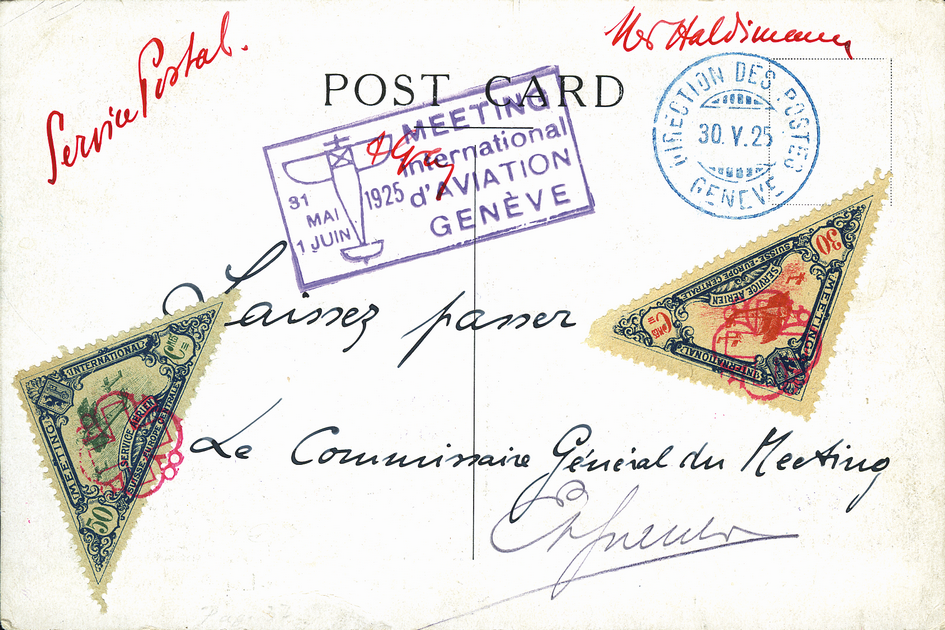 Service Postal.
POST CARD
MEETING
international
d'AVIATION
GENÈVE
31
MAI
1 JUIN
1925
DIRECTION DES POSTES
30. V. 25
GENÈVE
30
CMES
MEETING
INTERNATIONAL
SERVICE AÉRIEN
SUISSE-EUROPE CENTRALE
Laissez passer
INTERNATIONAL
CMES
MEETING
SERVICE AÉRIEN
SUISSE-EUROPE CENTRALE
50
Le Commissaire Général du Meeting